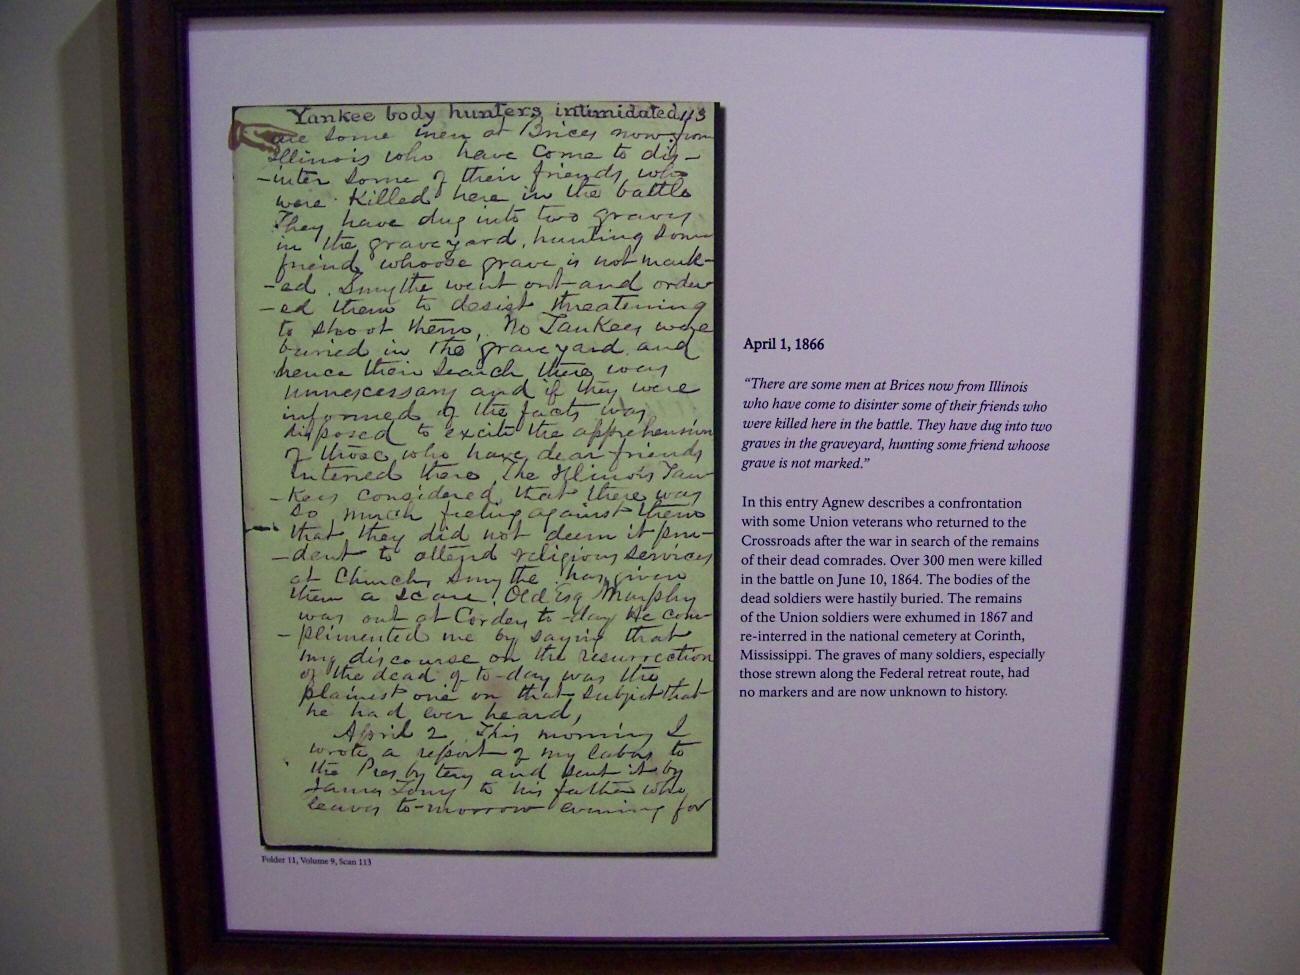 Yankee body hunters intimidated 113
are some men at Brices now from
Illinois who have come to dis-
-inter some of their friends who
were killed here in the battle
They have dug into two graves
in the graveyard, hunting some
friend whoose grave is not mark-
-ed. Smythe went out and order
-ed them to desist threatening
to shoot them. No Yankees were
buried in the graveyard and
hence their search there was
unnescessary and if they were
informed of the facts was
disposed to excite the apprehension
of those who have dear friends
interred there. The Illinois Yan
-kees considered that there was
so much feeling against them
that they did not deem it pru-
-dent to attend religious services
at Church, Smythe has given
them a scare. Old Esq Murphy
was out at Corders to-day He com-
-plimented me by saying that
my discourse on the resurrection
of the dead of to-day was the
plainest one on that subject that
he had ever heard,
April 2. This morning I
wrote a report of my labors to
the Presbytery and sent it by
James to his father who
leaves to-morrow evening for
Folder 11, Volume 9, Scan 113
April 1, 1866
“There are some men at Brices now from Illinois
who have come to disinter some of their friends who
were killed here in the battle. They have dug into two
graves in the graveyard, hunting some friend whoose
grave is not marked.”
In this entry Agnew describes a confrontation
with some Union veterans who returned to the
Crossroads after the war in search of the remains
of their dead comrades. Over 300 men were killed
in the battle on June 10, 1864. The bodies of the
dead soldiers were hastily buried. The remains
of the Union soldiers were exhumed in 1867 and
re-interred in the national cemetery at Corinth,
Mississippi. The graves of many soldiers, especially
those strewn along the Federal retreat route, had
no markers and are now unknown to history.